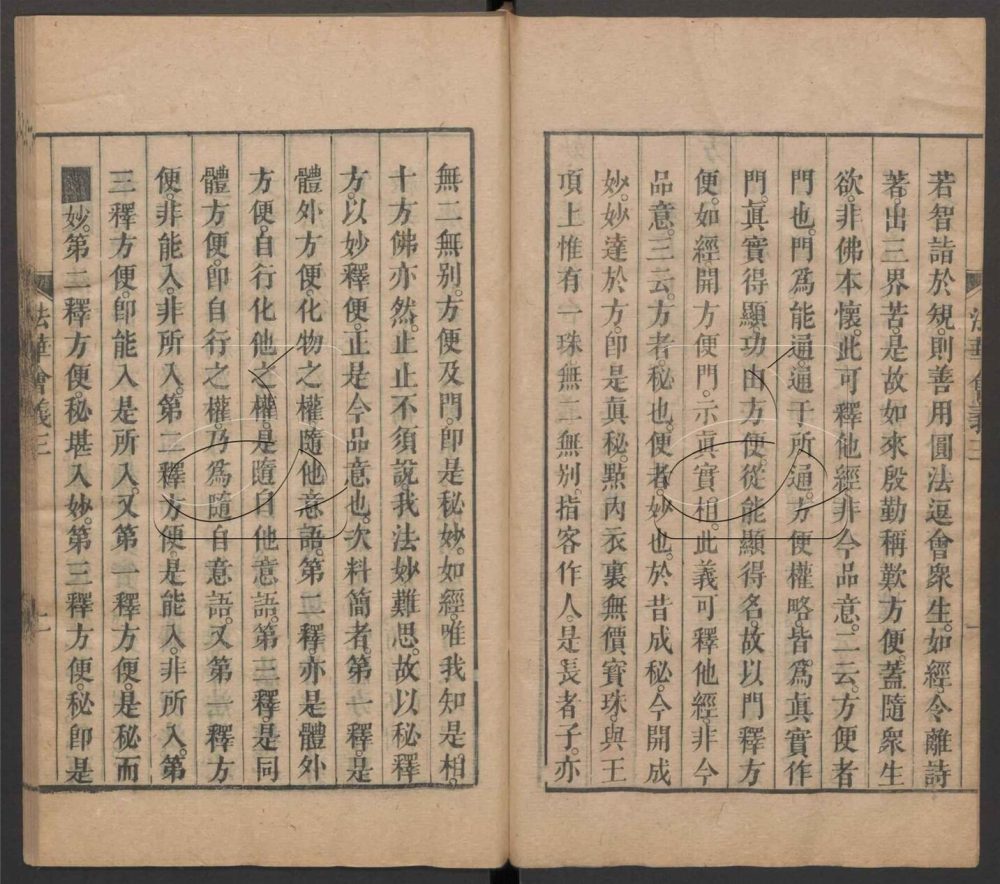 若智詣於規。則善用圓法逗會衆生。如經。令離諸
著。出三界苦。是故如來殷勤稱歎方便。蓋隨衆生
欲。非佛本懷。此可釋他經。非今品意。二云。方便者
門也。門爲能通。通于所通。方便權略。皆爲眞實作
門。眞實得顯。功由方便。從能顯得名。故以門釋方
便。如經開方便門。示眞實相。此義可釋他經。非今
品意。三云。方者。秘也。便者。妙也。於昔成秘。今開成
妙。妙達於方。卽是眞秘。點內衣裏無價寶珠。與王
項上惟有一珠無二無別。指客作人。是長者子。亦
無二無別。方便及門。卽是秘妙。如經。唯我知是相。
十方佛亦然。止止不須說我法妙難思。故以秘釋
方。以妙釋便。正是今品意也。次料簡者。第一釋。是
體外方便。化物之權。隨他意語。第二釋。亦是體外
方便。自行化他之權。是隨自他意語。第三釋。是同
體方便。卽自行之權。乃爲隨自意語。又第一釋方
便。非能入。非所入。第二釋方便。是能入。非所入。第
三釋方便。卽能入是所入。又第一釋方便。是秘而
妙。第二釋方便。秘堪入妙。第三釋方便。秘卽是
法華會義三
十一